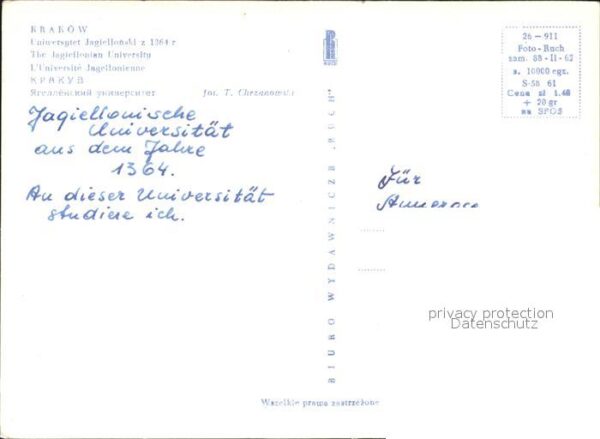 KRAKÓW
Uniwersytet Jagielloński z 1364 r
The Jagiellonian University
L'Université Jagellonienne
КРАКУВ
Ягеллёнский университет fot. T. Chrzanowski
Jagiellonische
Universität
aus dem Jahre
1364.
An dieser Universität
studiere ich.
BIURO WYDAWNICZE „RUCH"
RUCH
26 — 911
Foto - Ruch
zam. 88 - II - 62
n. 10000 egz.
S-58 61
Cena zł 1.40
+ 20 gr
na SFOS
Für
privacy protection
Datenschutz
Wszelkie prawa zastrzeżone